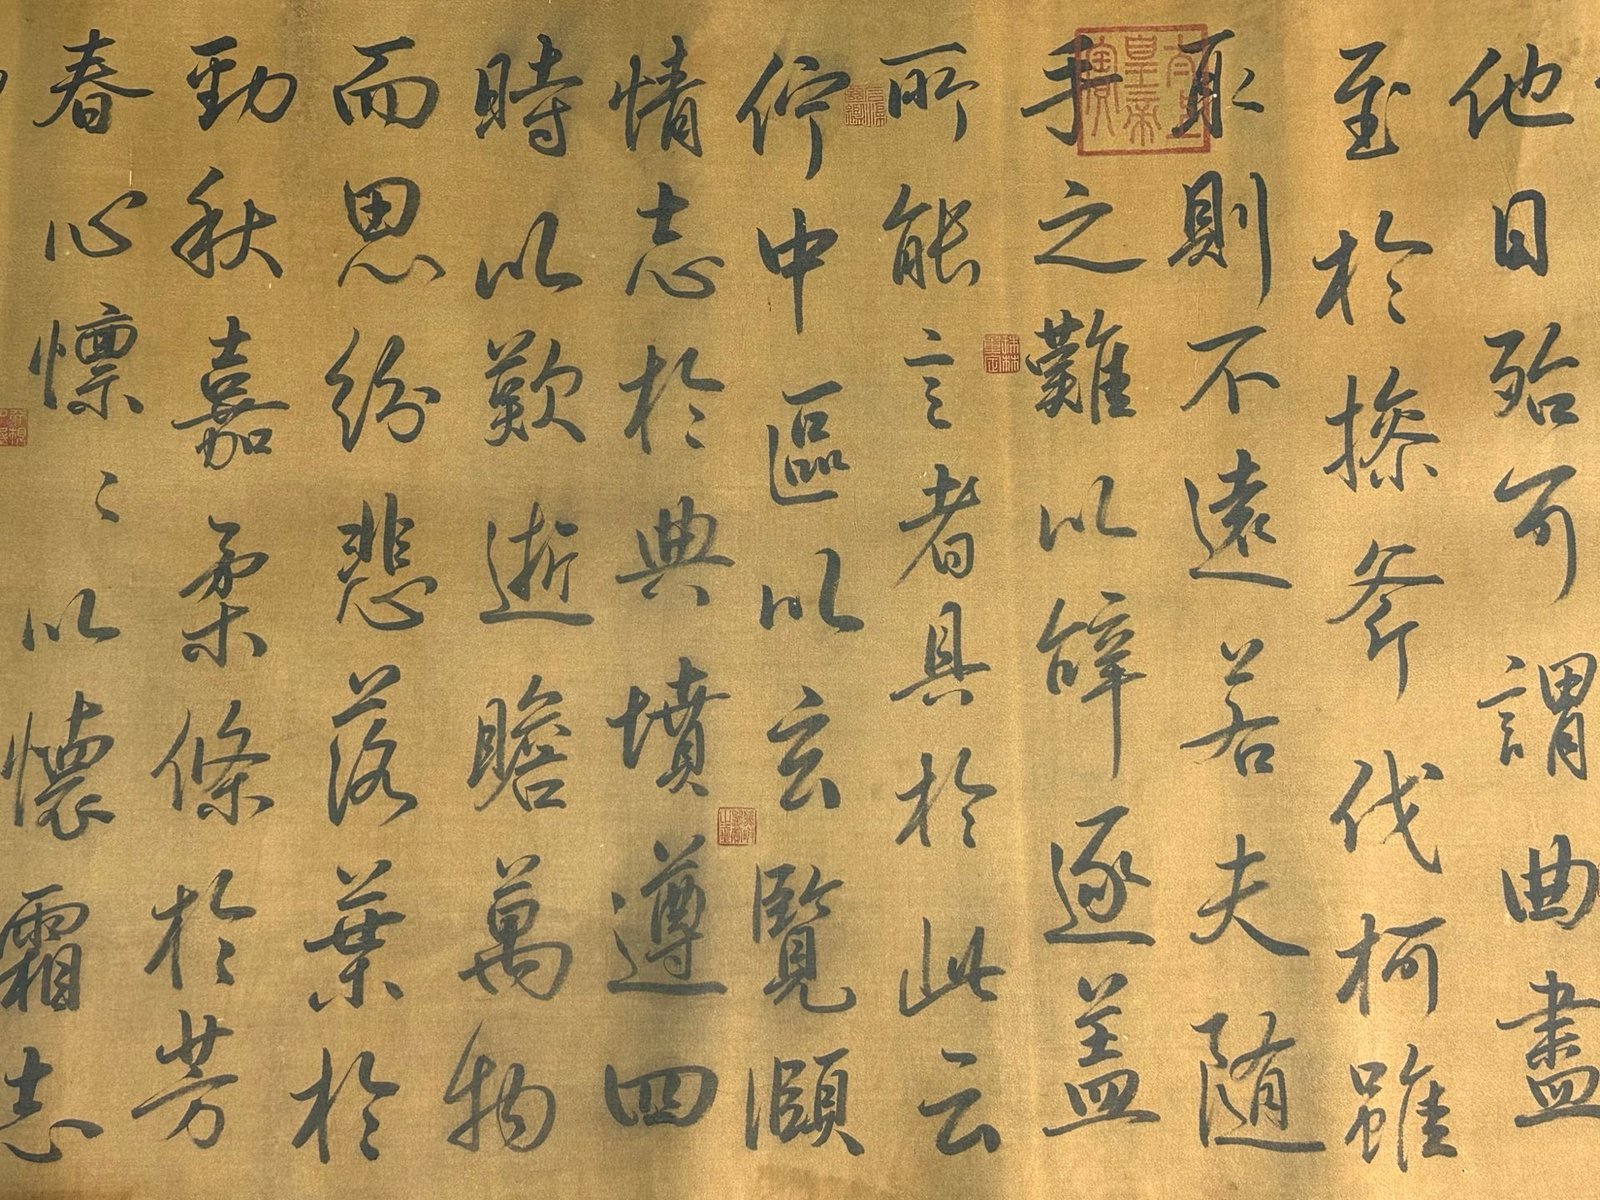 他日殆可謂曲盡
至於操斧伐柯雖
取則不遠若夫隨
手之難以辭逐蓋
所能言者具於此云
佇中區以玄覽頤
情志於典墳遵四
時以歎逝瞻萬物
而思紛悲落葉於
勁秋嘉柔條於芳
春心懍〻以懷霜志